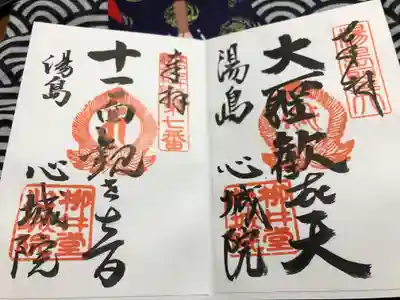 奉拝
大聖歓喜天
湯島
心城院
柳井堂
奉拝
第七番
十一面観世音
湯島
心城院
柳井堂